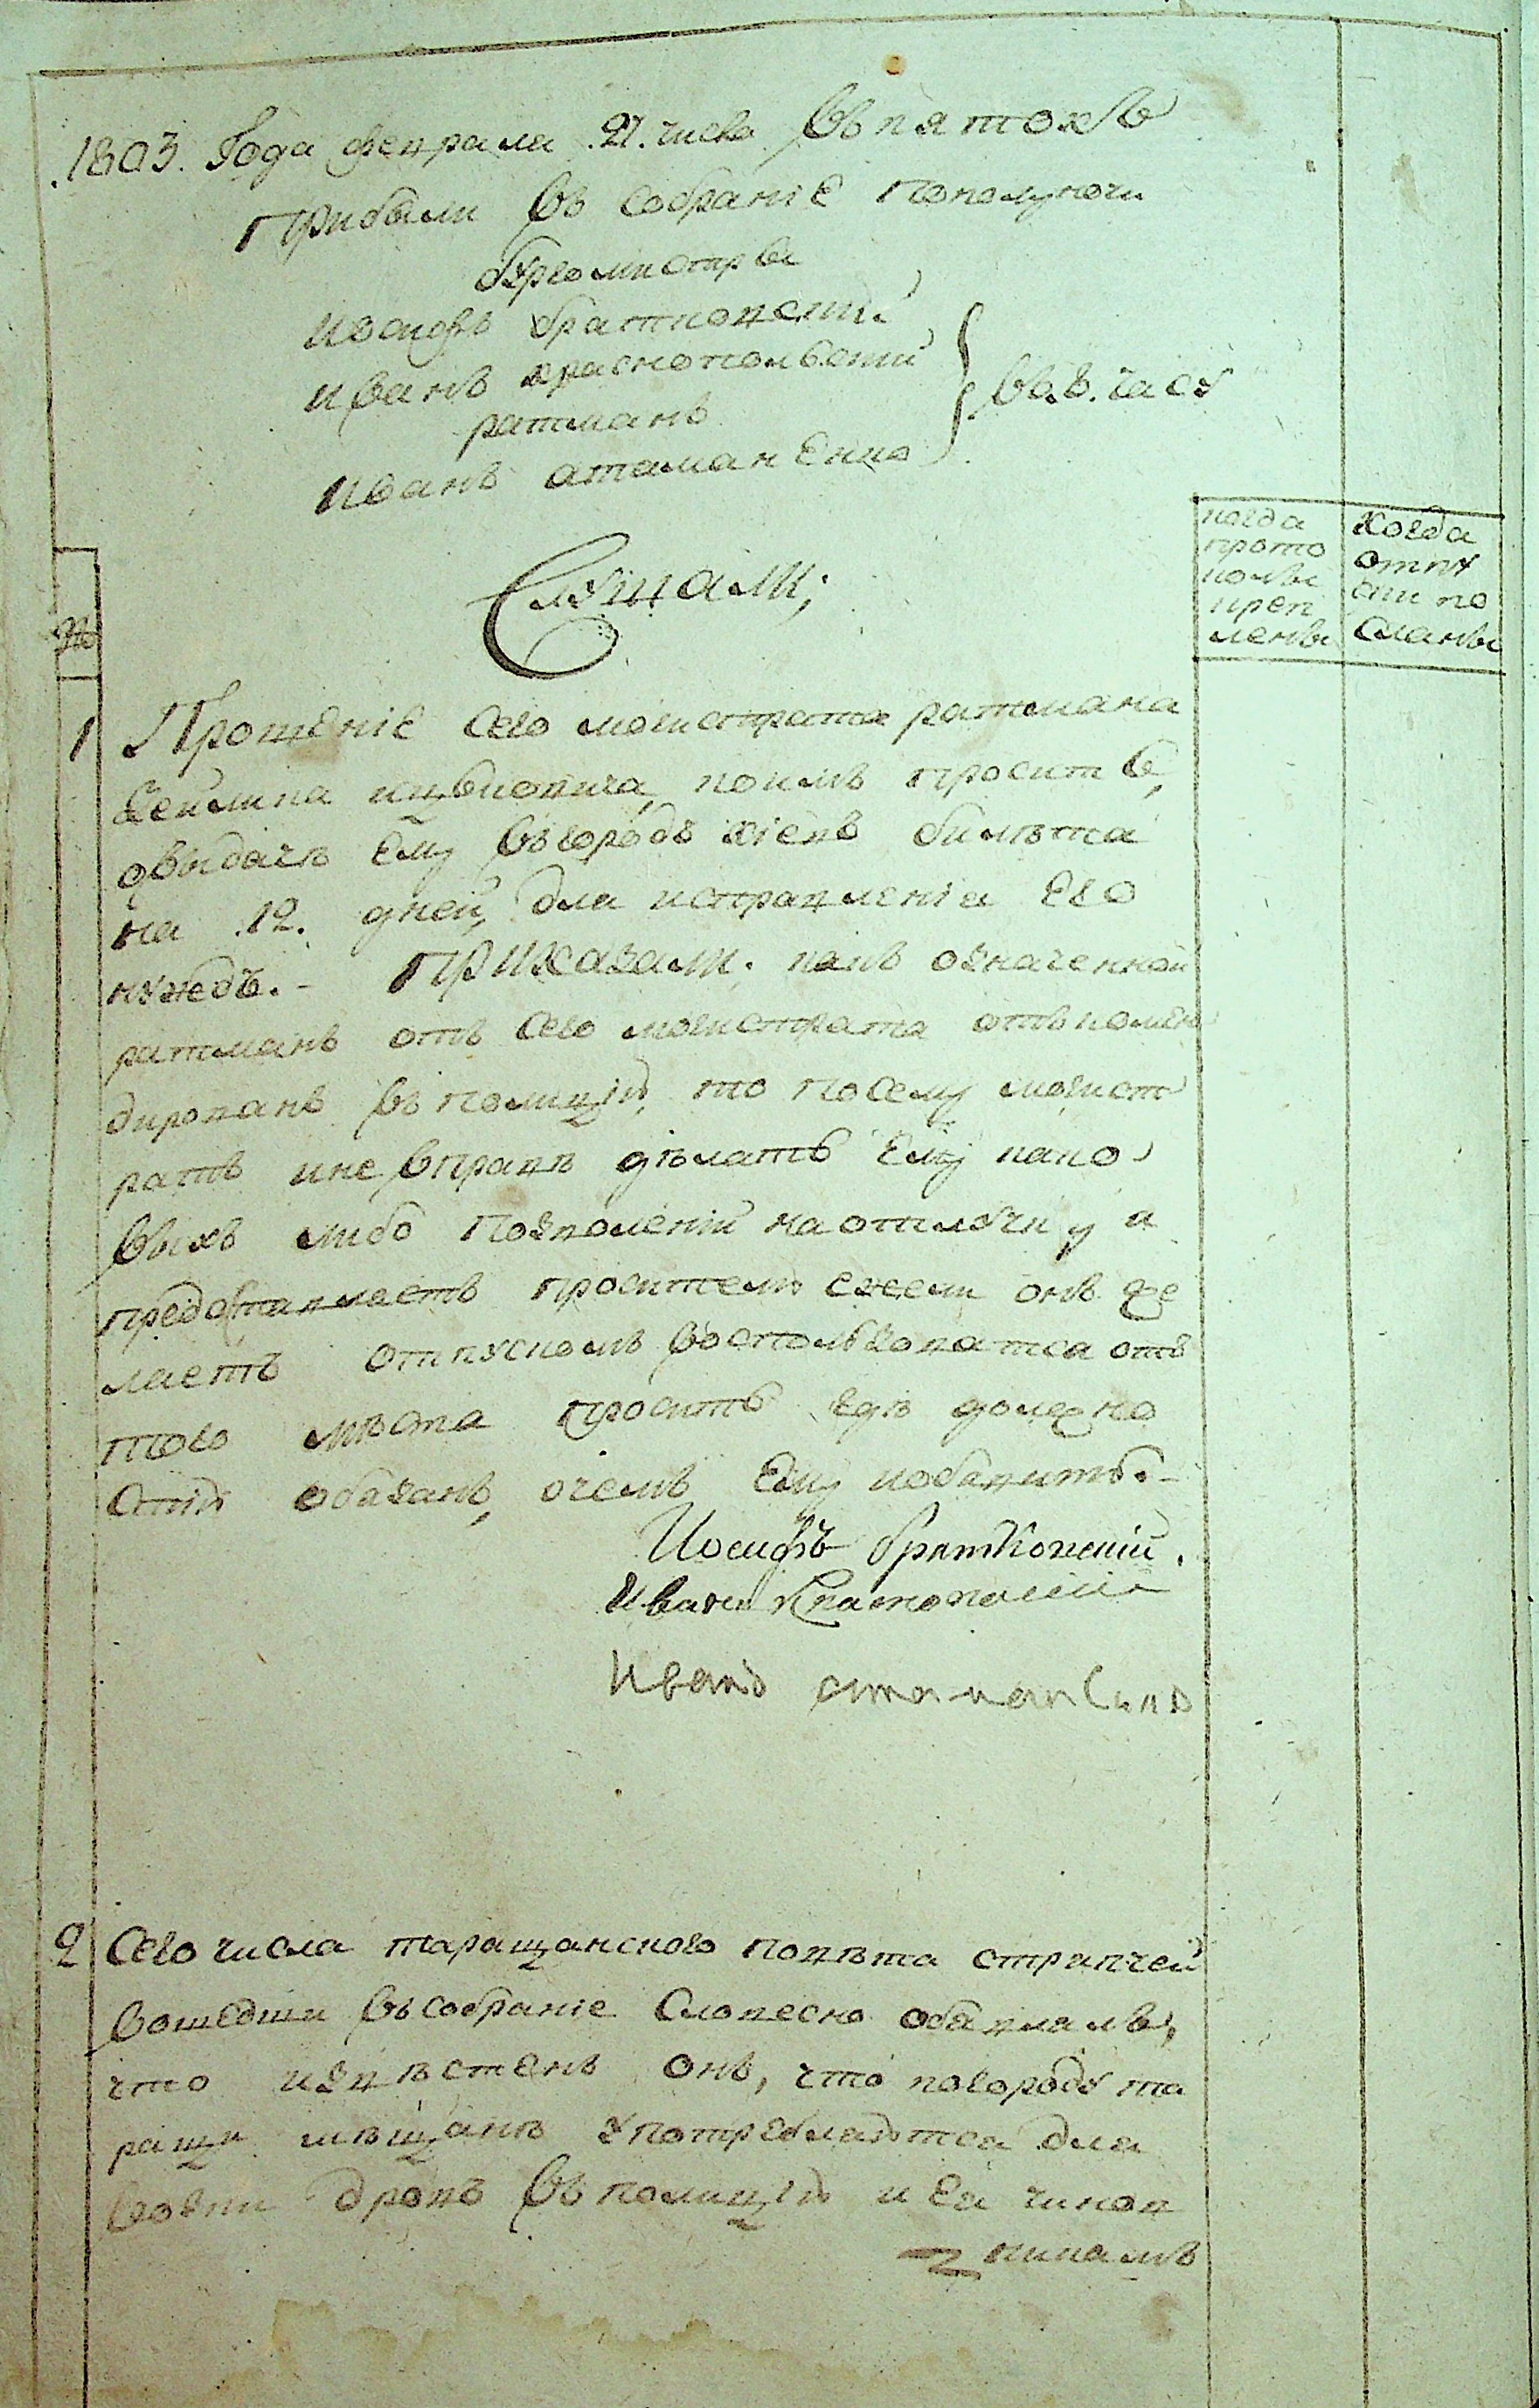 .1803. Года февраля .21. числа въ пятокъ
Прибыли въ собраніе пополуночи
бургомистры
Иосифъ братковскій
Иванъ краснопольскій
ратманъ
Иванъ атаманенко
въ.8. часу
Слушали;
когда
прото
колы
креп
лены
Когда
отпу
ски по
сланы
№
1 Прошеніе сего магистрата ратмана
коимъ проситъ,
овыдачѣ Ему въгородъ кіевъ билѣта
на .12. дней, для исправленія Его
нуждъ.- Приказали. какъ означенной
ратманъ отъ сего магистрата откоман
дированъ въ полицію, то посему магист
ратъ ине вправѣ дѣлать Ему како
выхъ либо позволеній наотлучку а
предоставляетъ просителю ежели онъ же
лаетъ отпускомъ воспользоватса отъ
того мѣста просить гдѣ должно
стію обязанъ, очемъ Ему и объявить.-
Иосифъ братковскій.
Иванъ Краснополскій
Иванъ атаманенко
2 Сего числа таращанского повѣта стряпчей
вошедши въ собраніе словесно объявлялъ,
что извѣстенъ онъ, что погороду та
ращи мѣщанѣ употребляютса для
возки дровъ въ полицію и Ея чинов
никамъ